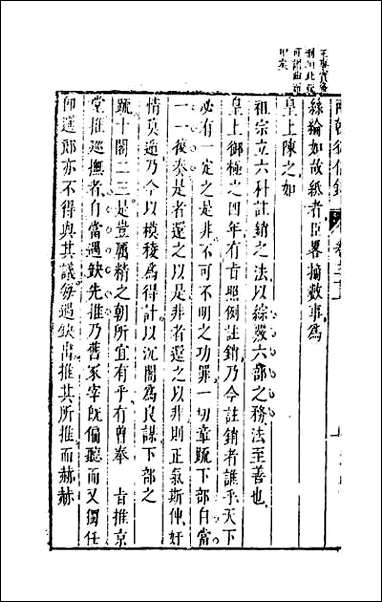 兩朝從信錄 卷三十二
絲綸如故紙者臣畧摘數事爲
皇上陳之如
祖宗立六科註銷之法以綜覈六部之務法至善也
皇上御極之四年有旨照例註銷乃今註銷者誰乎天下
必有一定之是非不可不明之功罪一切章疏下部自當
一一復奏是者還之以是非者還之以非則正氣斯伸奸
情莫遁乃今以模稜爲得計以沉閣爲良謀下部之
疏十閣二三是豈厲精之朝所宜有乎有曾奉 旨推京
堂推廵撫者自當遇缺先推乃舊冢宰旣偏聽而又獨任
卽選郎亦不得與其議每遇缺出推其所推而赫赫